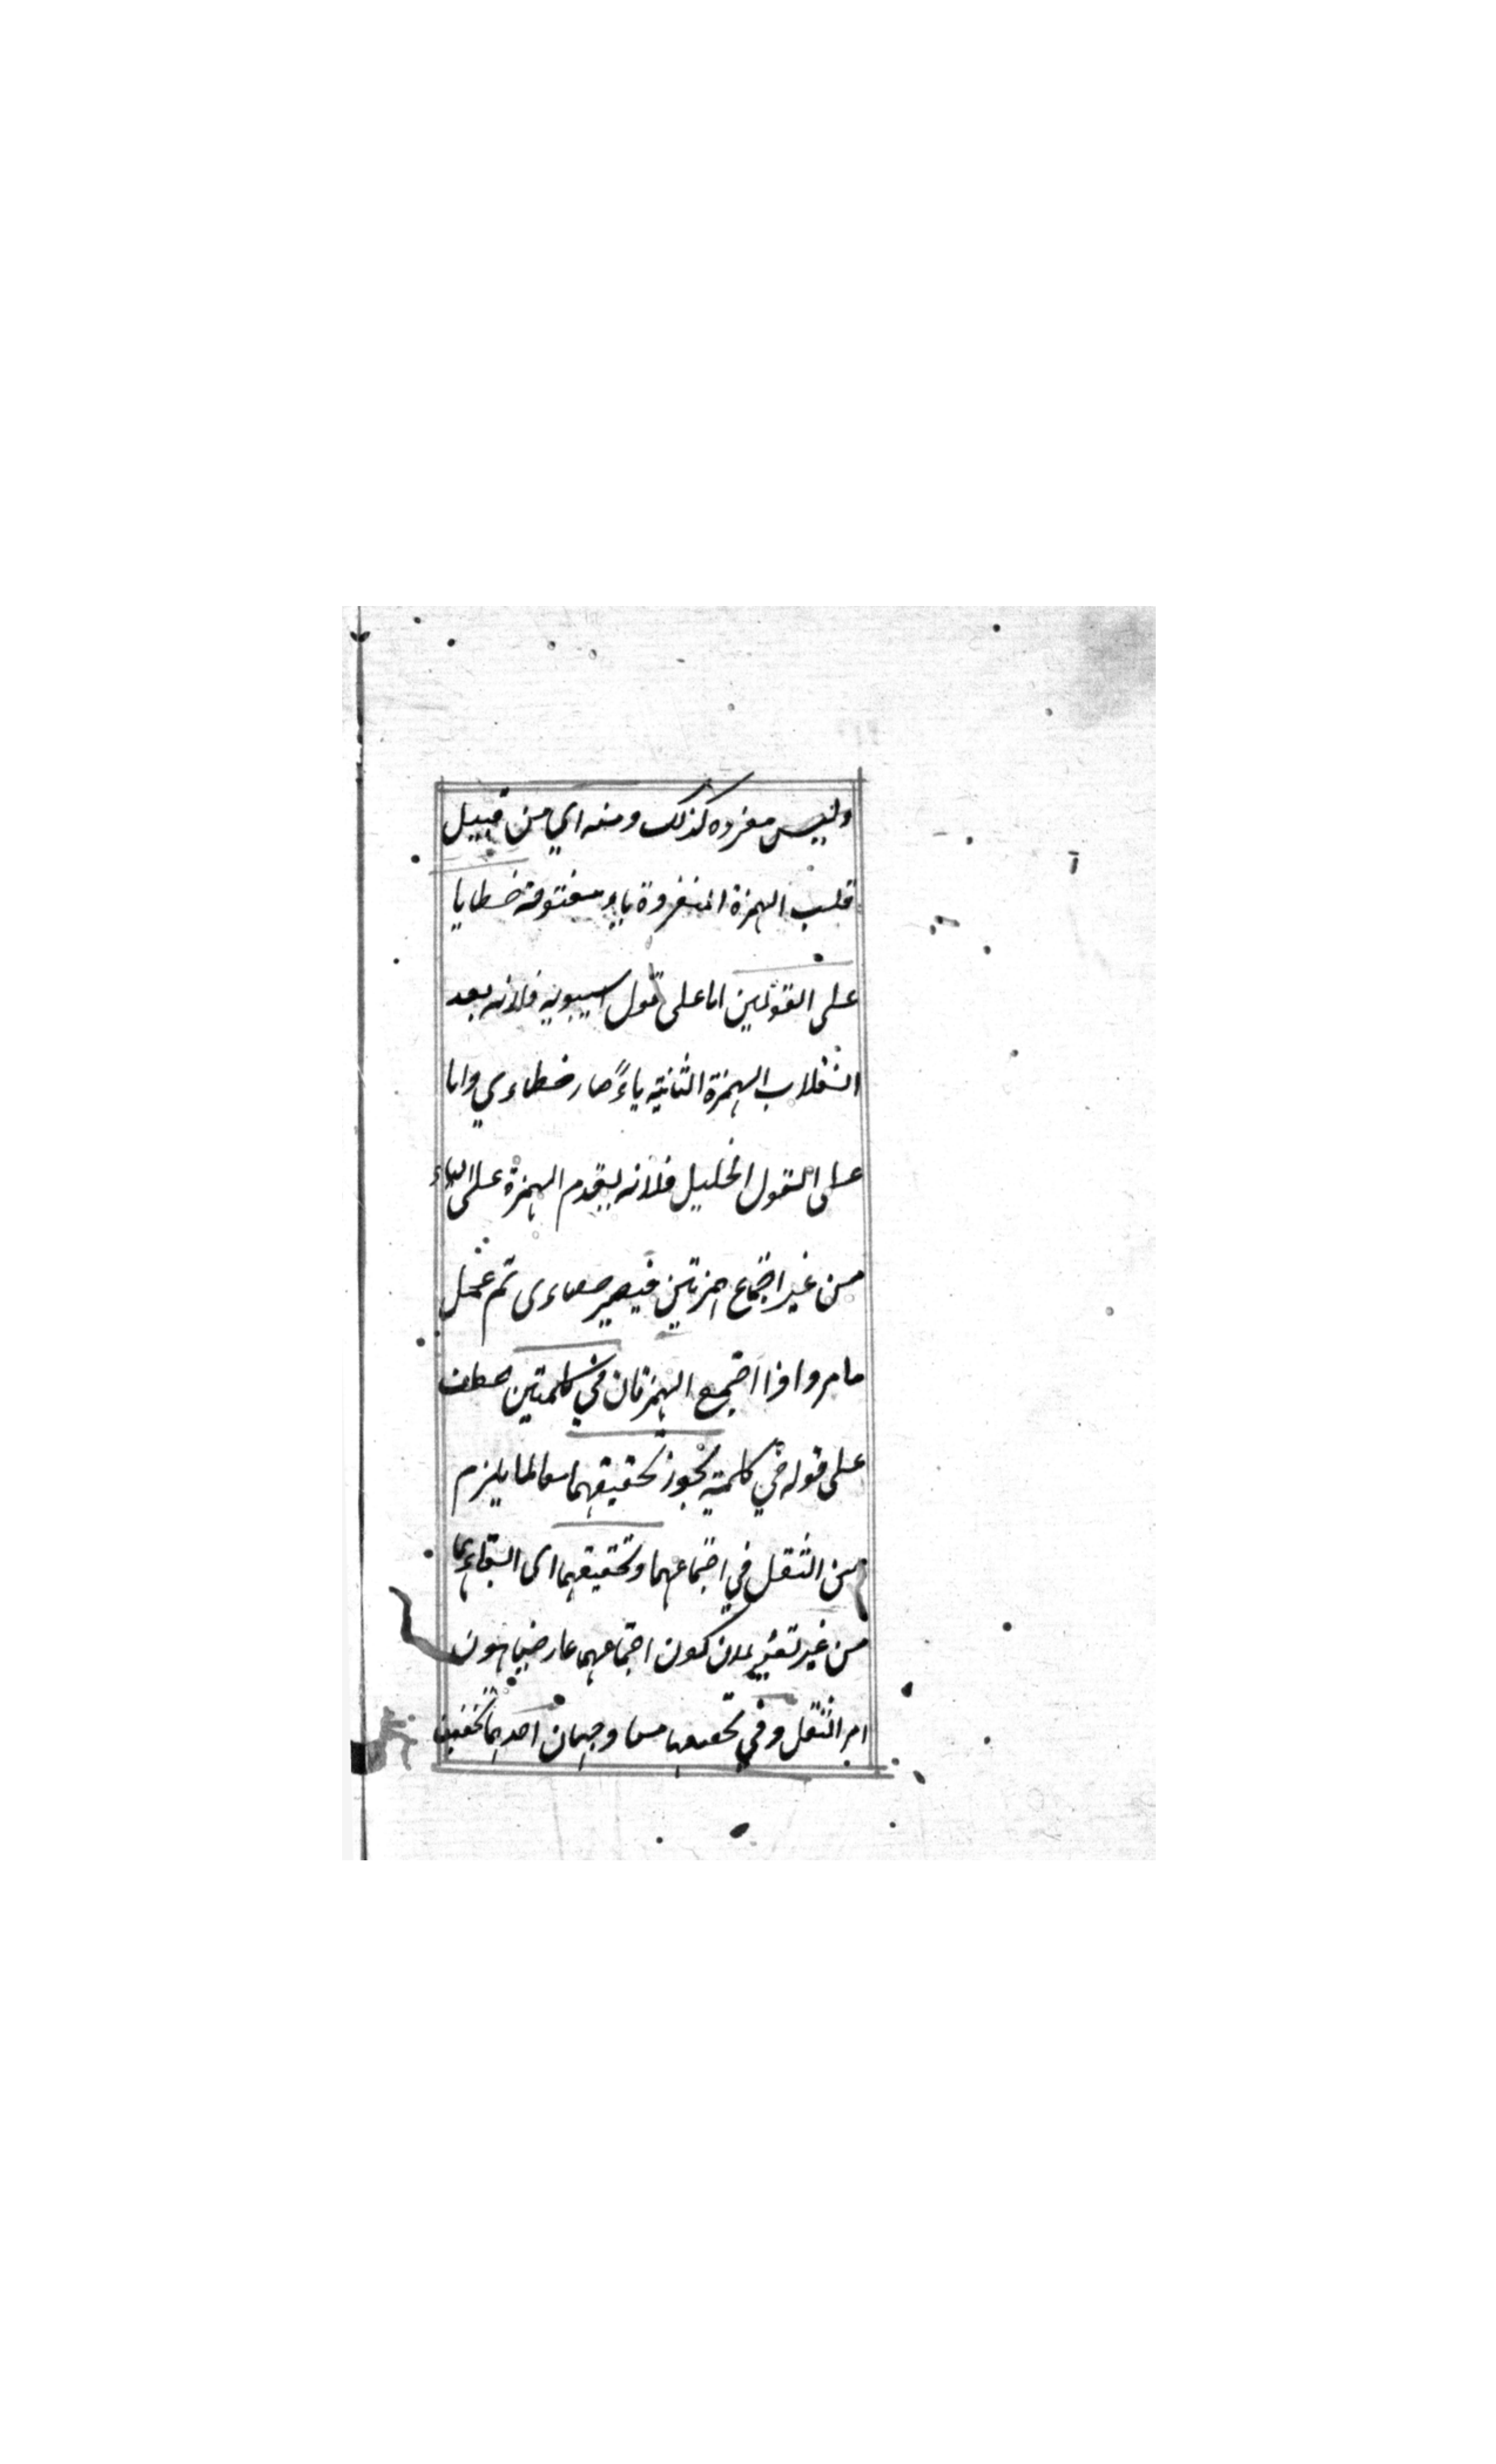 وليس مفرده كذلك ومنه اي من قبيل
قلب الهمزة المنفردة ياء مفتوحة خطايا
على القولين اما على قول سيبويه فلانه بعد
انقلاب الهمزة الثانية ياءً صار خطاءي واما
على القول الخليل فلانه يقدم الهمزة على الياء
من غير اجتماع همزتين فيصير ثم عمل
ما مر واذا اجتمع الهمزتان في كلمتين عطف
على قوله في كلمة يجوز تحقيقهما لما يلزم
من الثقل في اجتماعهما وتحقيقهما اى ابقاءهما
من غير تغيير لان كون اجتماعهما عارضيا يهون
امر الثقل وفي وجهان احديهما تخفيف